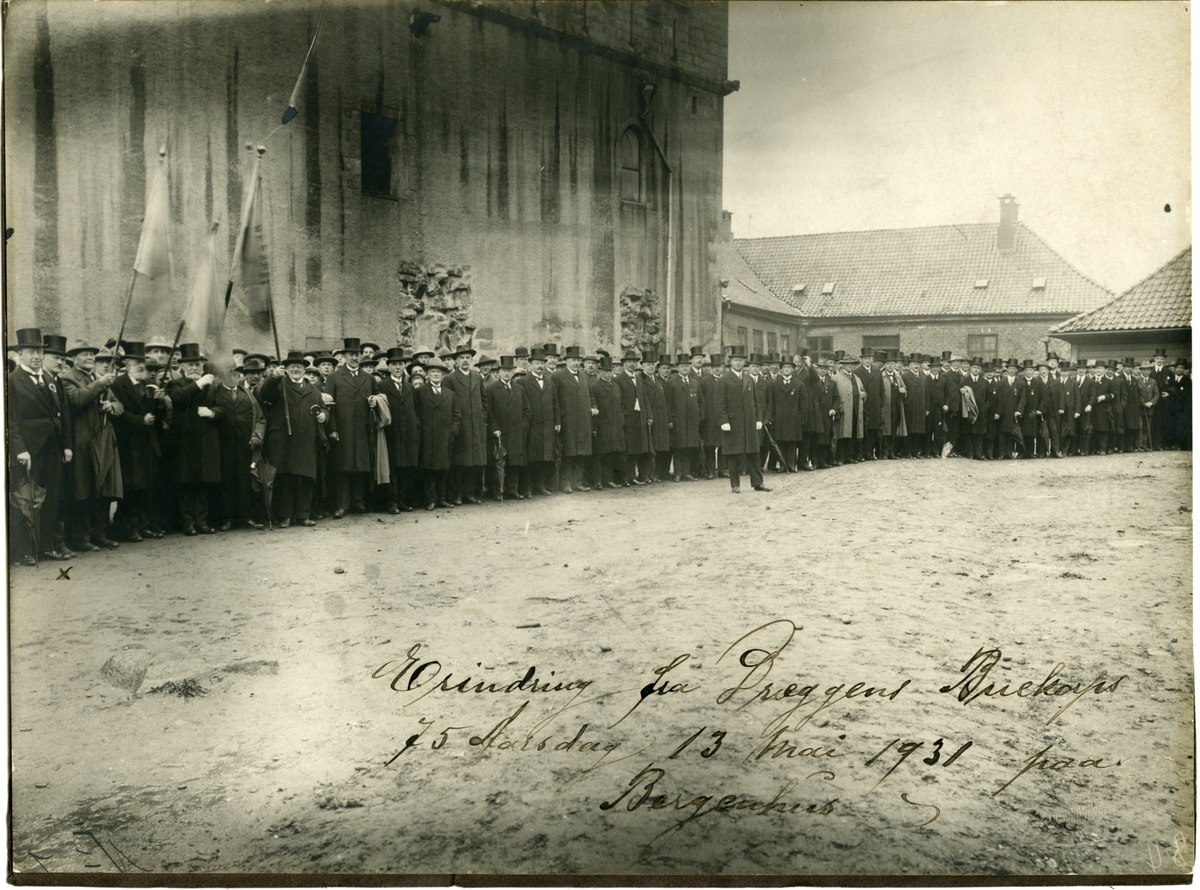 Erindring fra Dræggens Buekorps
75 Aarsdag 13 Mai 1931 paa
Bergenhus